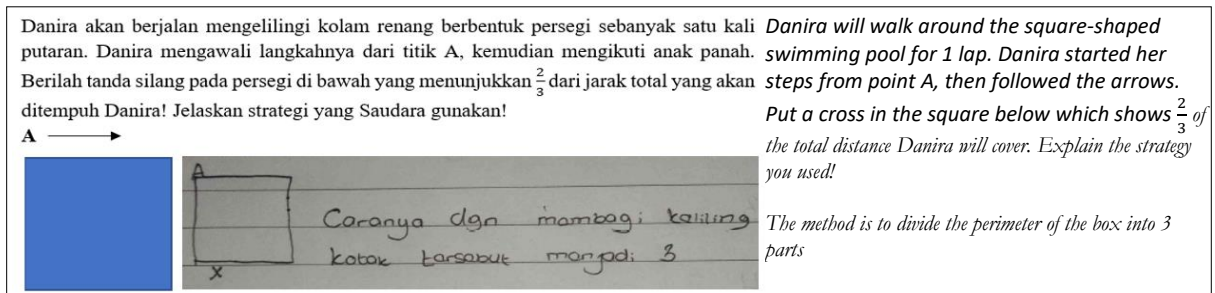 Danira akan berjalan mengelilingi kolam renang berbentuk persegi sebanyak satu kali
putaran. Danira mengawali langkahnya dari titik A, kemudian mengikuti anak panah.
Berilah tanda silang pada persegi di bawah yang menunjukkan 2/3 dari jarak total yang akan
ditempuh Danira! Jelaskan strategi yang Saudara gunakan!
A
A
Caranya dgn mambagi kaliling
kotak tarsabut manjadi 3
X
Danira will walk around the square-shaped
swimming pool for 1 lap. Danira started her
steps from point A, then followed the arrows.
Put a cross in the square below which shows 2/3 of
the total distance Danira will cover. Explain the strategy
you used!
The method is to divide the perimeter of the box into 3
parts